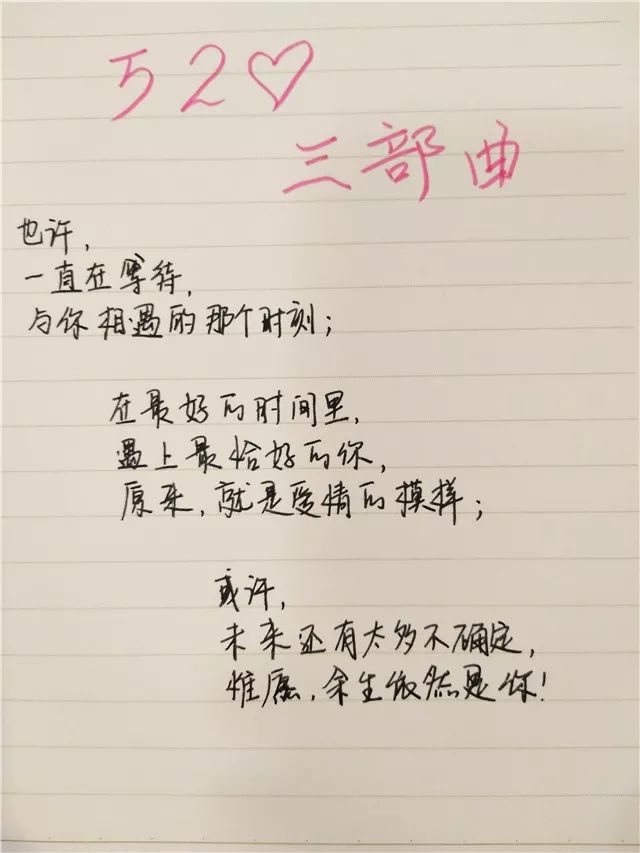 520♡
三部曲
也许，
一直在等待，
与你相遇的那个时刻；
在最好的时间里，
遇上最恰好的你，
原来，就是爱情的模样；
或许，
未来还有太多不确定，
惟愿，余生依然是你！